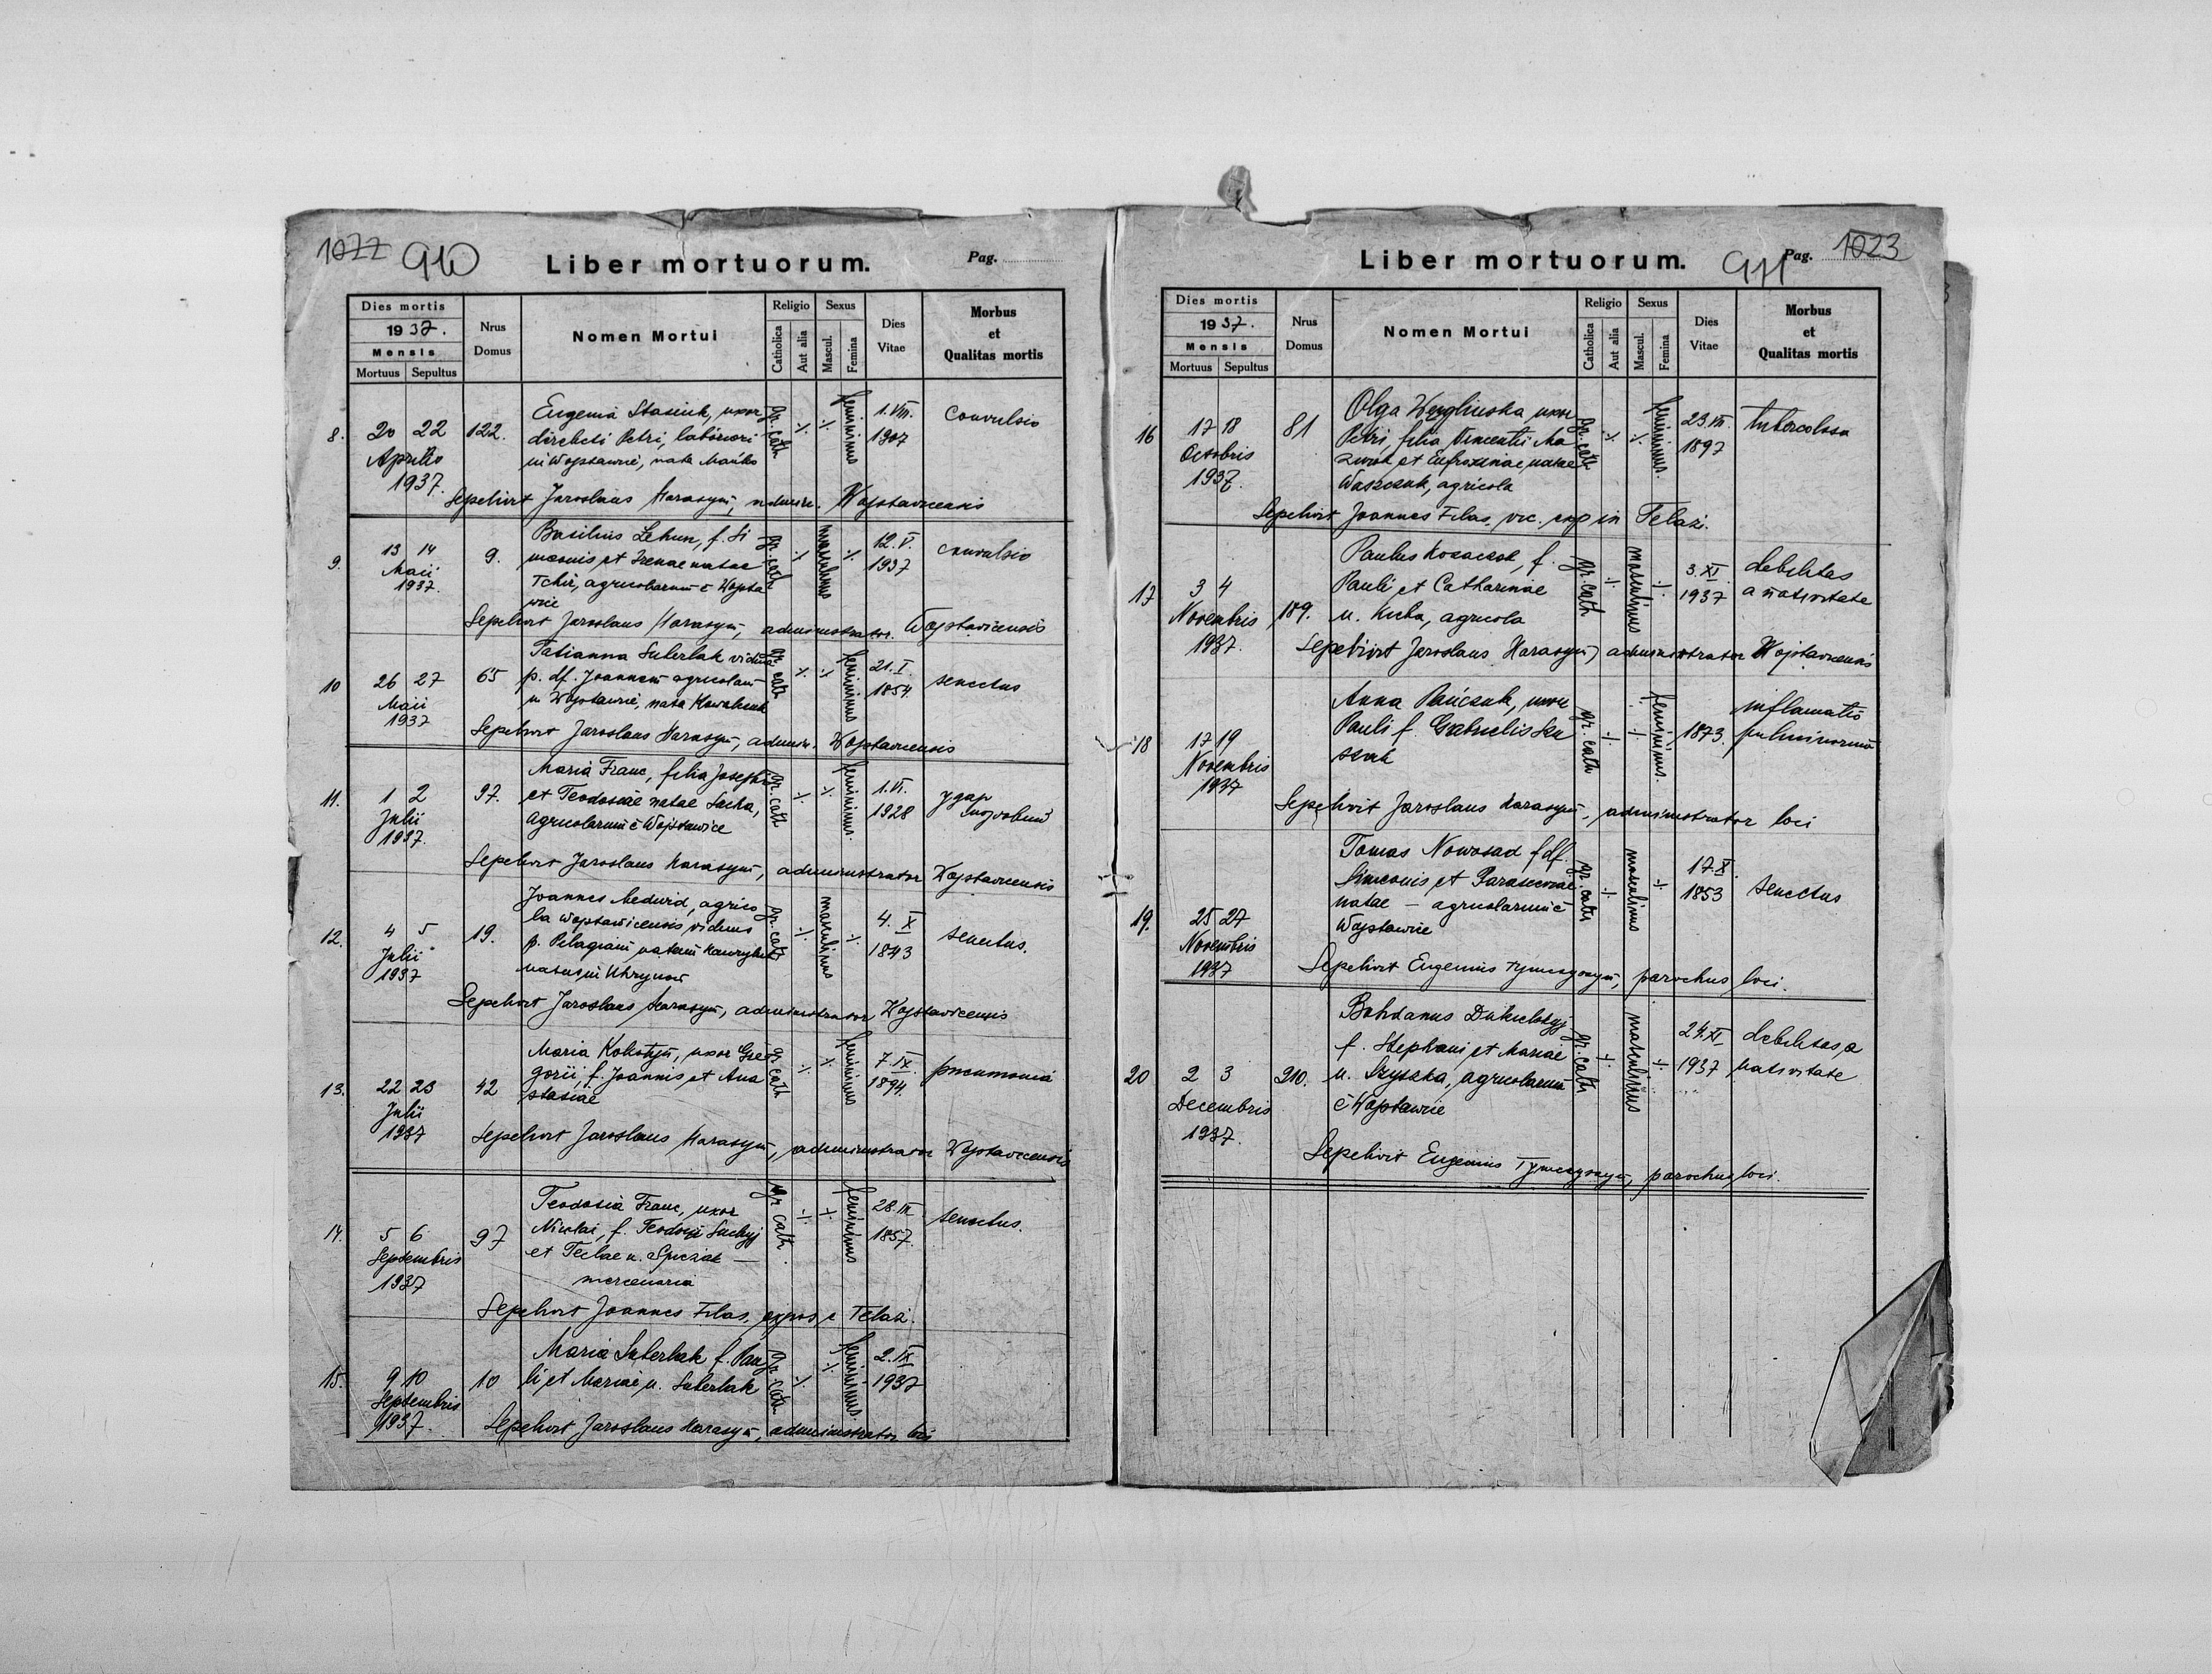 1022 910
Liber mortuorum.
Pag.
Dies mortis
1937.
Mensis
Mortuus Sepultus
Nrus Domus
Nomen Mortui
Religio
Catholica
Aut alia
Sexus
Mascul.
Femina
Dies Vitae
Morbus et Qualitas mortis
8. 20 22 Aprilis 1937. 122.
Eugenia Stasiuk, uxor
directi Petri, laboriori
in Wojslawice, nata Mańko
gr. cath ./. ./. femininus 1. VIII. 1907 Convulsio
Sepelivit Jaroslaus Harasym, admin. Wojslavicensis
9. 13 14 Maii 1937. 9.
Basilius Lehun, f. Si
meonis et Irenae natae
Tchir, agricolarum e Wojsla
wice
gr. cath ./. masculinus ./. 12. V. 1937 convulsio
Sepelivit Jaroslaus Harasym, administrator. Wojslavicensis
10 26 27 Maii 1937 65
Tatianna Suterlak vidua
p. df. Joannem agricolam
in Wojslawice, nata Kowalczuk
gr. cath ./. ./. femininus 21. I. 1854. senectus
Sepelivit Jaroslaus Harasym, admin. Wojslavicensis
11. 1 2 Julii 1937. 97.
Maria Franc, filia Josephi
et Teodosiae natae Sucha,
agricolarum e Wojslawice
gr. cath ./. ./. femininus. 1. VI. 1928 удар
Sepelivit Jaroslaus Harasym, administrator Wojslavicensis
12. 4 5 Julii 1937 19.
Joannes Medwid, agrico
la wojslawicensis viduus
p. Pelagiam natam
natus in Uhrynow
gr. cath ./. masculinus ./. 4. X 1843 senectus.
Sepelivit Jaroslaus Harasym, administrator Wojslavicensis
13. 22 23 Julii 1937 42
Maria Kokotym, uxor Gre
gorii, f. Joannis et Ana
stasiae
gr. cath ./. ./. femininus 7. IX. 1894. pneumonia
Sepelivit Jaroslaus Harasym, administrator Wojslavicensis
14. 5 6 Septembris 1937 97
Teodosia Franc, uxor
Nicolai, f. Teodosii Suchyj
et Teclae n. Spiczak —
mercenaria
gr. cath. ./. ./. femininus 28. III 1857. senectus.
Sepelivit Joannes Filas, expos. e Telaz.
15. 9 10 Septembris 1937. 10
Maria Suterlak f. Pau
li et Mariae n. Suterlak
gr. cath. ./. ./. femininus. 2. IX 1937
Sepelivit Jaroslaus Harasym, administrator loci
Liber mortuorum.
911 Pag. 1023
Dies mortis
1937.
Mensis
Mortuus Sepultus
Nrus Domus
Nomen Mortui
Religio
Catholica
Aut alia
Sexus
Mascul.
Femina
Dies Vitae
Morbus et Qualitas mortis
16 17 18 Octobris 1937. 81
Olga Węglinska uxor
Petri, filia Vincentii Ma
zurok et Eufrozinae natae
Waszczuk, agricola
gr. cath ./. ./. femininus. 23. VII. 1897 tubercolosa
Sepelivit Joannes Filas, vic. exp in Telaz.
17 3 4 Novembris 1937. 189.
Paulus Kozaczok, f.
Pauli et Catharinae
n. Kucba, agricola
gr. cath ./. masculinus ./. 3. XI. 1937 debilitas
a nativitate
Sepelivit Jaroslaus Harasym, administrator Wojslavicensis
18 17 19 Novembris 1937
Anna Pańczuk, uxor
Pauli f. Gabrielis Sen
gr. cath ./. ./. femininus. 1873. inflamatio
pulminorum
Sepelivit Jaroslaus Harasym, administrator loci
19. 25 27 Novembris 1937
Tomas Nowosad f. df.
Simeonis et Parascevae
natae — agricolarum e
Wojslawice
gr. cath ./. masculinus ./. 17. X. 1853 senectus
Sepelivit Eugenius Tymczyszyn, parochus loci.
20 2 3 Decembris 1937. 210.
Bohdanus Dukielskyj
f. Stephani et Mariae
n. Szyszka, agricolarum
e Wojslawice
gr. cath ./. masculinus ./. 24. XI 1937 debilitas a
nativitate
Sepelivit Eugenius Tymczyszyn, parochus loci.